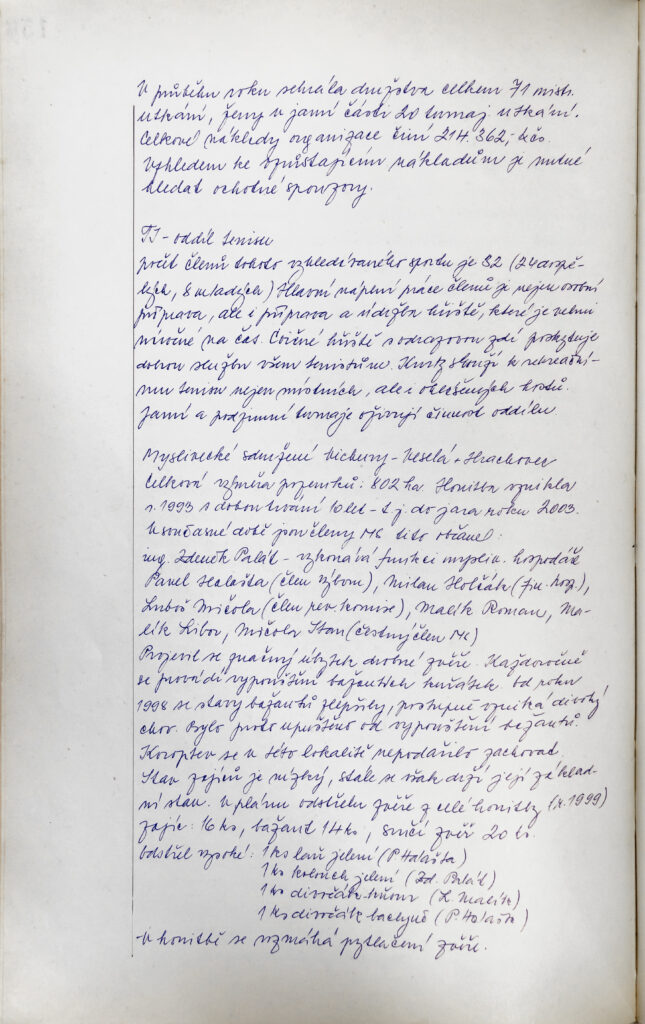 V průběhu roku sehrála družstva celkem 71 mistr.
utkání, ženy v jarní části 20 turnaj. utkání.
Celkové náklady organizace činí 214.362,- Kčs.
Vzhledem ke zvyšujícím nákladům je nutné
hledat ochotné sponzory.
TJ - oddíl tenisu
počet členů tohoto vyhledávaného sportu je 32 (24 dospě-
lých, 8 mladých) Hlavní náplní práce členů je nejen osobní
příprava, ale i příprava a údržba hřiště, které je velmi
náročné na čas. Cvičné hřiště s odrazovou zdí poskytuje
dobrou službu všem tenistům. Kurty slouží k rekreační-
mu tenisu nejen místních, ale i okolních hostů.
Jarní a podzimní turnaje oživují činnost oddílu.
Myslivecké sdružení Vichury - Veselá + Hrachovec
Celková výměra pozemků: 802 ha. Honitba vznikla
r. 1993 s dobou trvání 10 let - t.j. do jara roku 2003.
V současné době jsou členy MS tito občané:
ing. Zdeněk Palát - vykonává funkci mysliv. hospodář
Pavel Halašta (člen výboru), Milan Holčák (fin. hosp.),
Luboš Mičola (člen rev. komise), Malík Roman, Ma-
lík Libor, Mičola Stan. (čestný člen MS)
Projevil se značný úbytek drobné zvěře. Každoročně
se provádí vypouštění bažantích kuřátek. Od roku
1998 se stavy bažantů zlepšily, postupně vzniká divoký
chov. Bylo proto upuštěno od vypouštění bažantů.
Koroptev se v této lokalitě nepodařilo zachovat.
Stav zajíců je nízký, stále se však drží její základ-
ní stav. V plánu odstřelu zvěře z celé honitby (r. 1999)
zajíc: 16 ks, bažant 14 ks, srnčí zvěř 20 ks.
Odstřel vysoké: 1 ks laň jelení (P. Halašta)
1 ks kolouch jelení (Zd. Palát)
1 ks divočák kňour (L. Malík)
1 ks divočák bachyně (P. Halašta)
V honitbě se rozmáhá pytlačení zvěře.